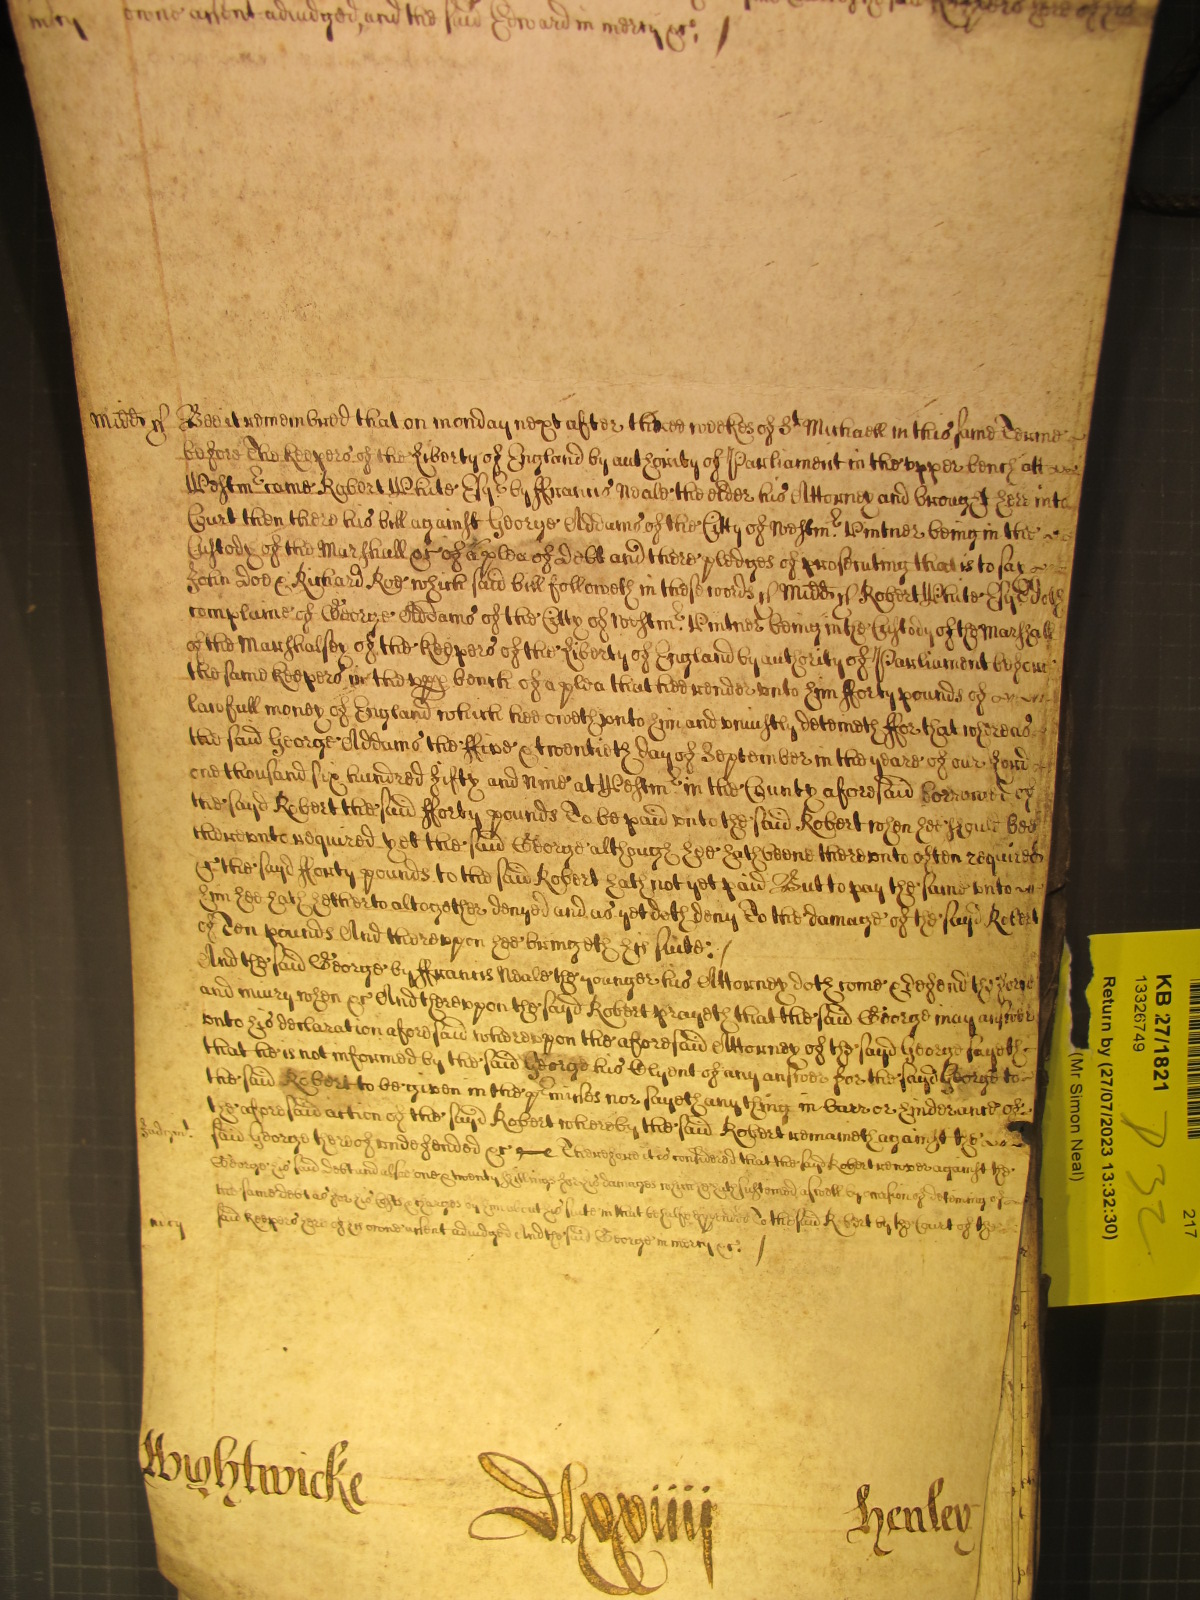 mcy one assent adiudged, and the said Edward in mercy &c. /
Midd ss Bee it remembred that on monday next after three weekes of St Michaell in this same Terme
before The Keepers of the Liberty of England by authority of Parliament in the vpper bench att
Westmr came Robert White Esqr by Ffrancis Neale the elder his Attorney and brought here into
Court then there his bill against George Addams of the City of Westmr Vintner being in the
Custody of the Marshall &c of a plea of Debt and there pledges of prosecuting that is to say
John Doe & Richard Roe which said bill followeth in these words ss Midd ss Robert White Esqr
complaine of George Addams of the Citty of Westmr Vintner being in the Custody of the Marshall
of the Marshalsey of the Keepers of the Liberty of England by authority of Parliament before
the same keepers in the vpp bench of a plea that hee render vnto him fforty pounds of
lawfull money of England which hee oweth vnto him and vniustly deteineth ffor that whereas
the said George Addams the ffive & twentieth day of September in the yeare of our Lord
one thousand six hundred fifty and nine at Westmr in the County aforesaid borrowed of
the sayd Robert the said fforty pounds To be paid vnto the said Robert when hee should bee
therevnto required yet the said George although hee hath beene therevnto often required
& the sayd fforty pounds to the said Robert hath not yet paid But to pay the same vnto
him hee hath hetherto altogether denyed and as yet doth deny To the damage of the sayd Robert
of Ten pounds And therevpon hee bringeth his suite: /
And the said George by ffrancis Neale the younger his Attorney doth come & defend the force
and iniury when &c And therevpon the sayd Robert prayeth that the said George may answer
vnto his declaration aforesaid wherevpon the aforesaid Attorney of the sayd George sayeth
that he is not informed by the said George his Clyent of any answer for the sayd George to
the said Robert to be given in the pr misses nor sayeth any thing in barr or hinderance of
the aforesaid action of the sayd Robert whereby the said Robert remaineth against the
Judgmt. said George hereof vndefended &c Therefore it is considered that the sayd Robert recover against the
George his said debt and alsoe one & twenty shillings for his damages which hee hath susteined aswell by reason of deteining of
the same debt as for his costs & charges by him about his suite in that behalfe expended To the said Robert by the Court of the
mcy said keepers here of his owne assent adiudged And the said George in mercy &c. /
Wightwicke Dlxxviiij Henley
KB 27/1821
13326749
Return by (27/07/2023 13:32:30)
(Mr Simon Neal)
217